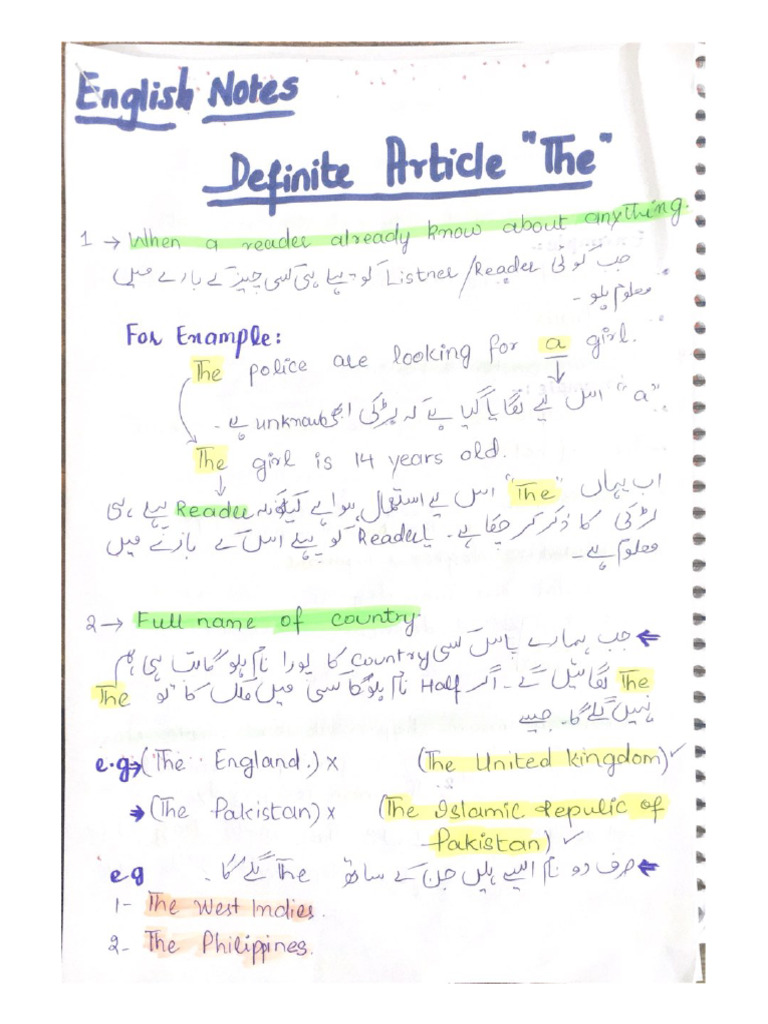 English Notes
Definite Article "The"
1 → When a reader already know about anything.
جب کوئی Listner/Reader کو پہلے ہی کسی چیز کے بارے میں
معلوم ہو -
For Example:
The police are looking for a girl.
"a" اس لیے لگایا گیا ہے کہ لڑکی ابھی unknown ہے۔
The girl is 14 years old.
اب یہاں "The" اس لیے استعمال ہوا ہے کیونکہ Reader پہلے ہی
لڑکی کا ذکر کر چکا ہے۔ یا Reader کو پہلے اس کے بارے میں
معلوم ہے -
2 → Full name of country.
← جب ہمارے پاس کسی Country کا پورا نام ہو گا تب ہی ہم
The لگائیں گے۔ اگر Half نام ہوگا کسی میں ملک کا تو The
نہیں لگے گا۔ جیسے
e.g → (The England.) x (The United kingdom) ✓
→ (The Pakistan) x (The Islamic Repulic of
Pakistan) ✓
← صرف دو نام ایسے ہیں جن کے ساتھ The لگے گا۔
e.g
1- The West Indies.
2- The Philippines.